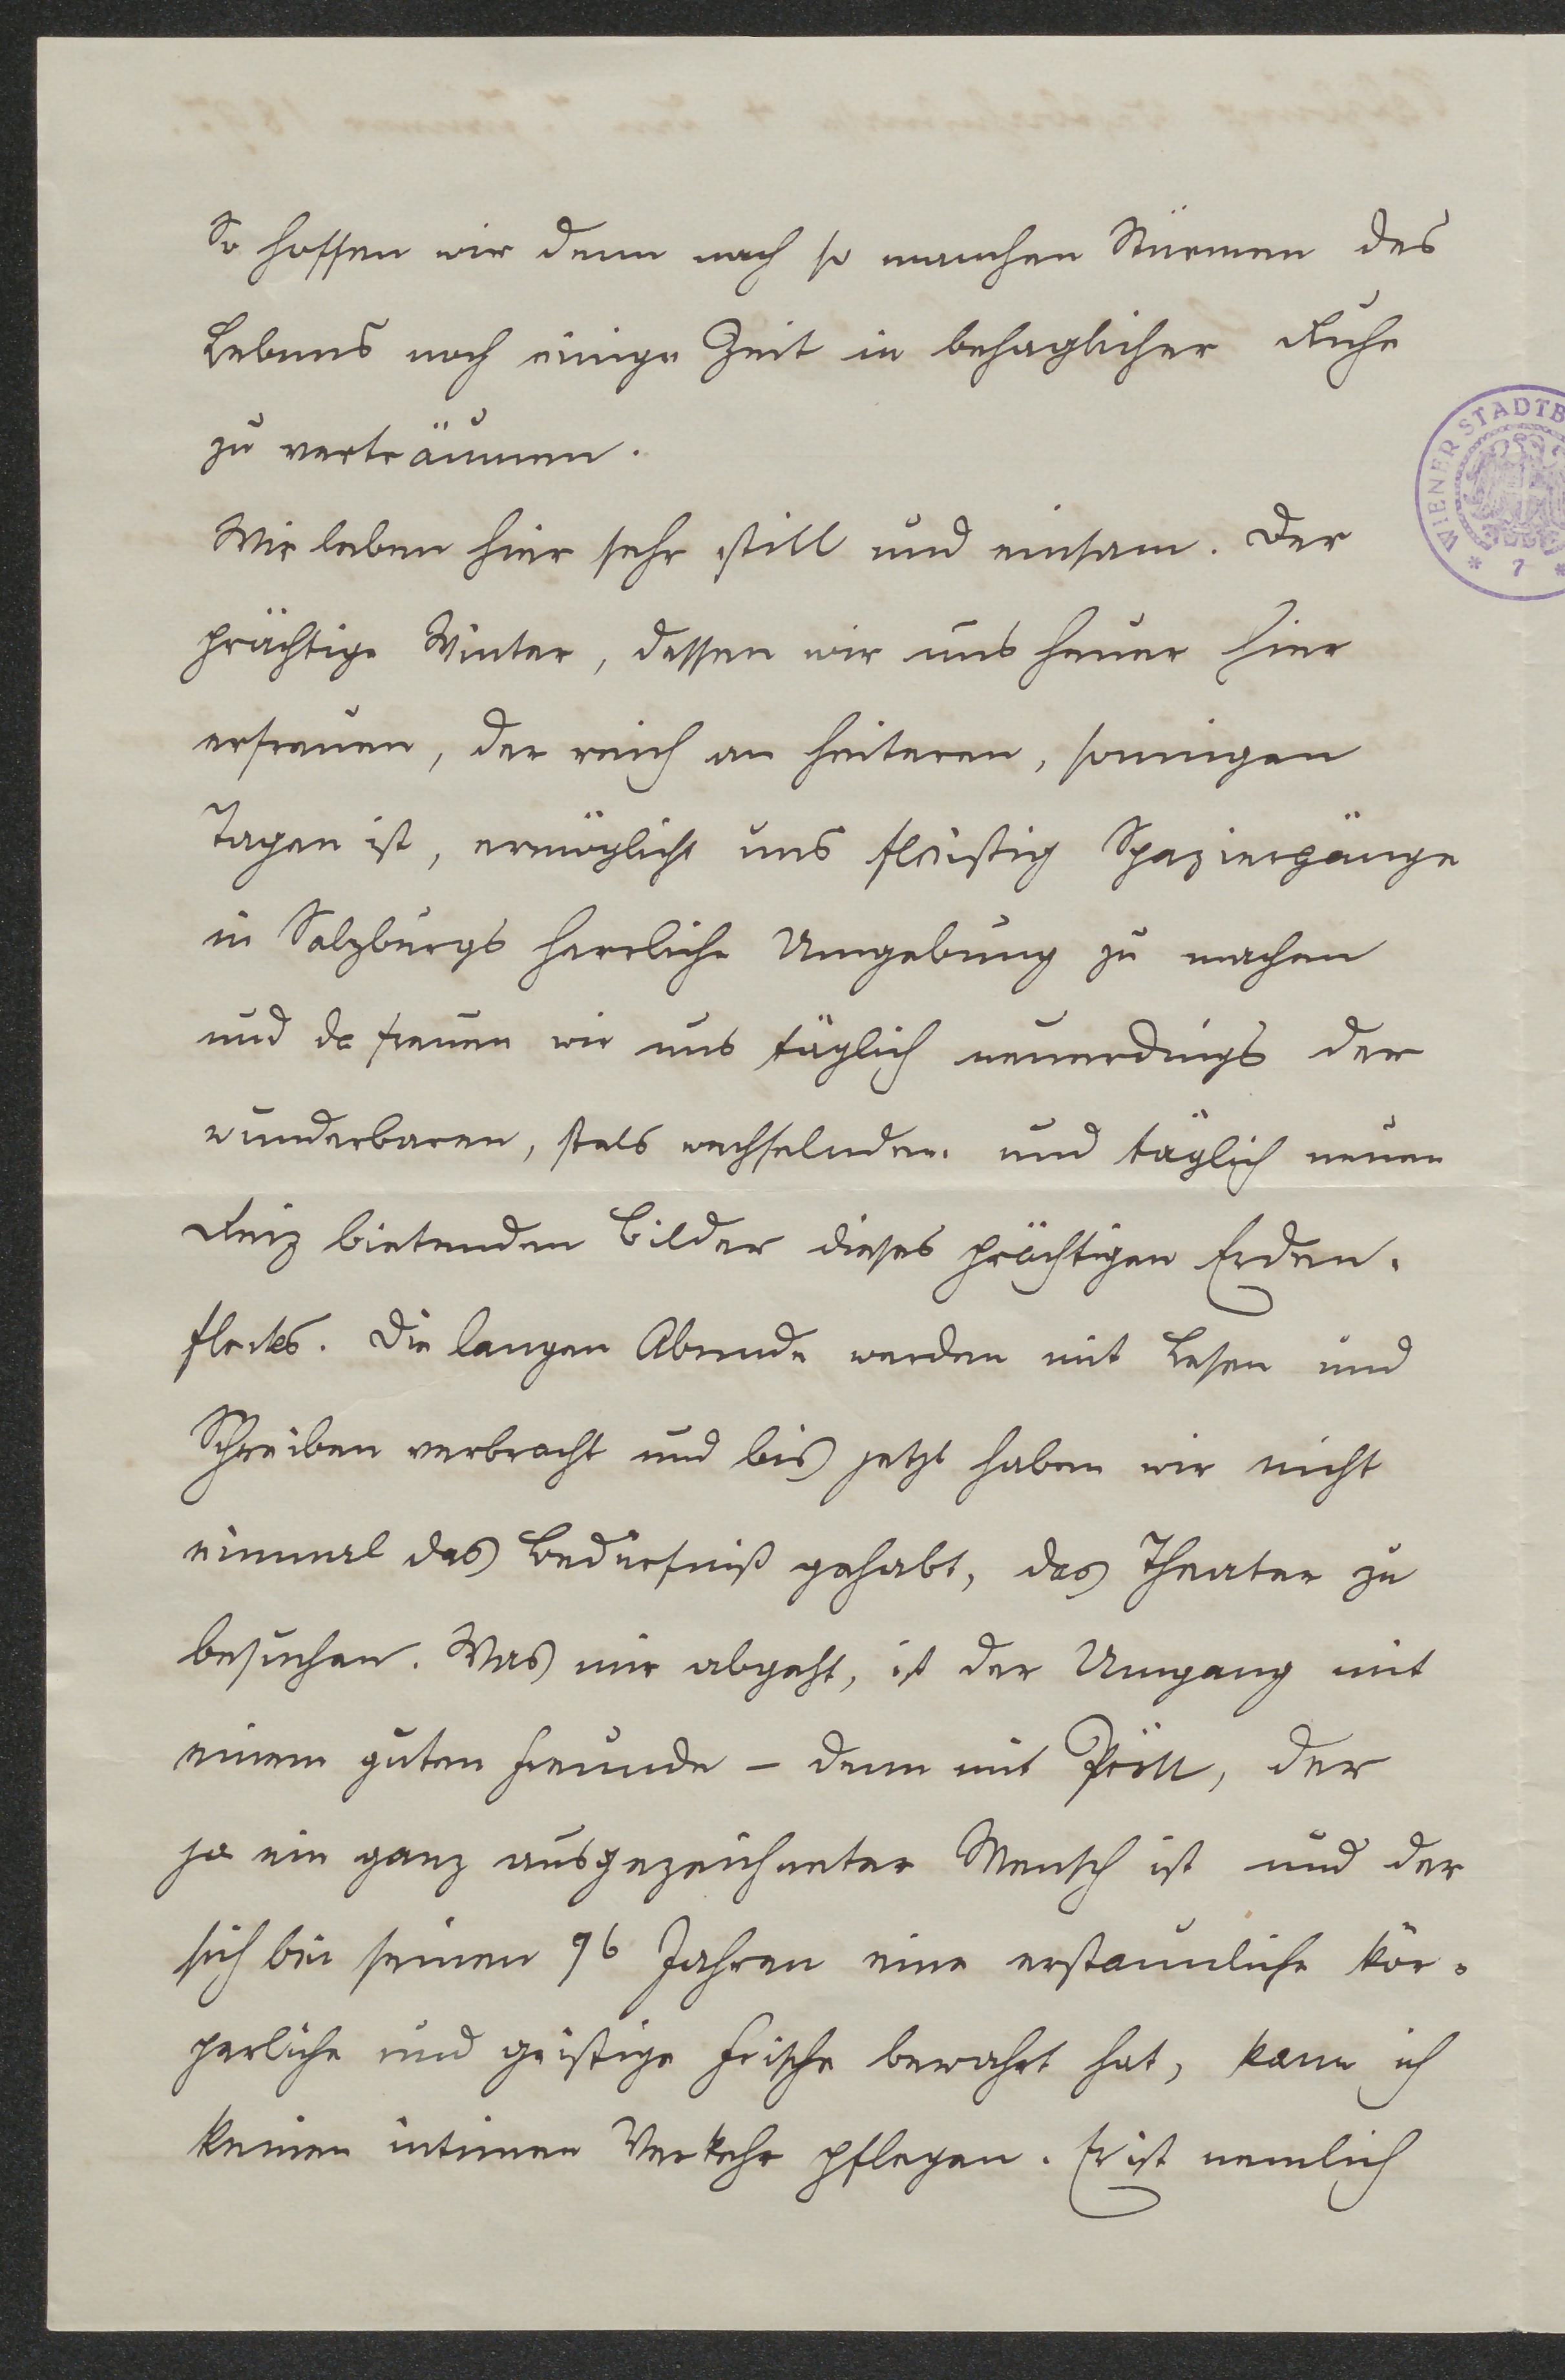 So hoffen wir denn nach so manchen Stürmen des
Lebens noch einige Zeit in behaglicher Ruhe
zu verträumen.
Wir leben hier sehr still und einsam. Der
prächtige Winter, dessen wir uns heuer hier
erfreuen, der reich an heiteren, sonnigen
Tagen ist, ermöglicht uns fleißig Spaziergänge
in Salzburgs herrliche Umgebung zu machen
und da freuen wir uns täglich neuerdings der
wunderbaren, stets wechselnden und täglich neuen
Reiz bietenden Bilder dieses prächtigen Erden-
flecks. Die langen Abende werden mit Lesen und
Schreiben verbracht und bis jetzt haben wir nicht
einmal das Bedürfniß gehabt, das Theater zu
besuchen. Was mir abgeht, ist der Umgang mit
einem guten Freunde – denn mit Pröll, der
ja ein ganz ausgezeichneter Mensch ist und der
sich bei seinen 76 Jahren eine erstaunliche kör-
perliche und geistige Frische bewahrt hat, kann ich
keinen intimen Verkehr pflegen. Er ist nemlich
WIENER STADTB
* 7 *